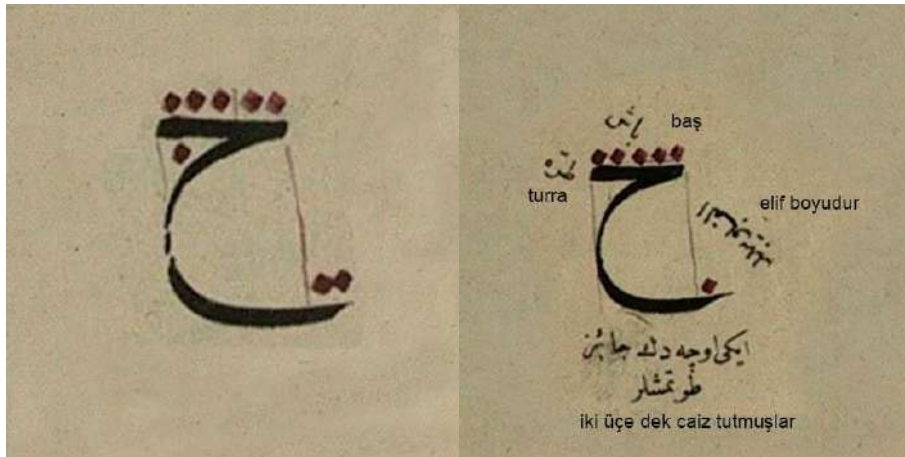 ح
ح
باش
baş
طره
turra
elif boyudur
ایکی اوچه دك جائز
طوتمشلر
iki üçe dek caiz tutmuşlar